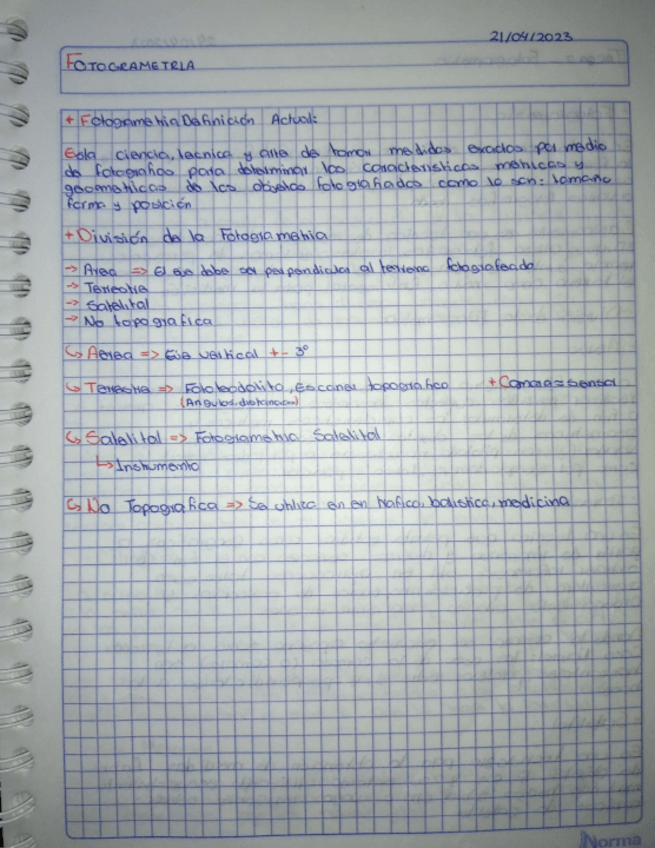 21/04/2023
FOTOGRAMETRIA
+ Fotogrametria Definición Actual:
Esla ciencia, tecnica y arte de tomar medidas exactas por medio
de fotografias para determinar las caracteristicas metricas y
geometricas de los objetos fotografiados como lo son: tamaño
forma y posición
+ División de la Fotogrametria
→ Area => El eje debe ser perpendicular al terreno fotografeado
→ Terrestre
→ Satelital
→ No topografica
↳ Aerea => Eje vertical +- 3°
↳ Terrestre => Fototeodolito, Escaner topografico + Camara = sensor
(Angulos, distancias)
↳ Satelital => Fotogrametria Satelital
↳ Instrumento
↳ No Topografica => Se utiliza en en trafico, balistica, medicina
Norma